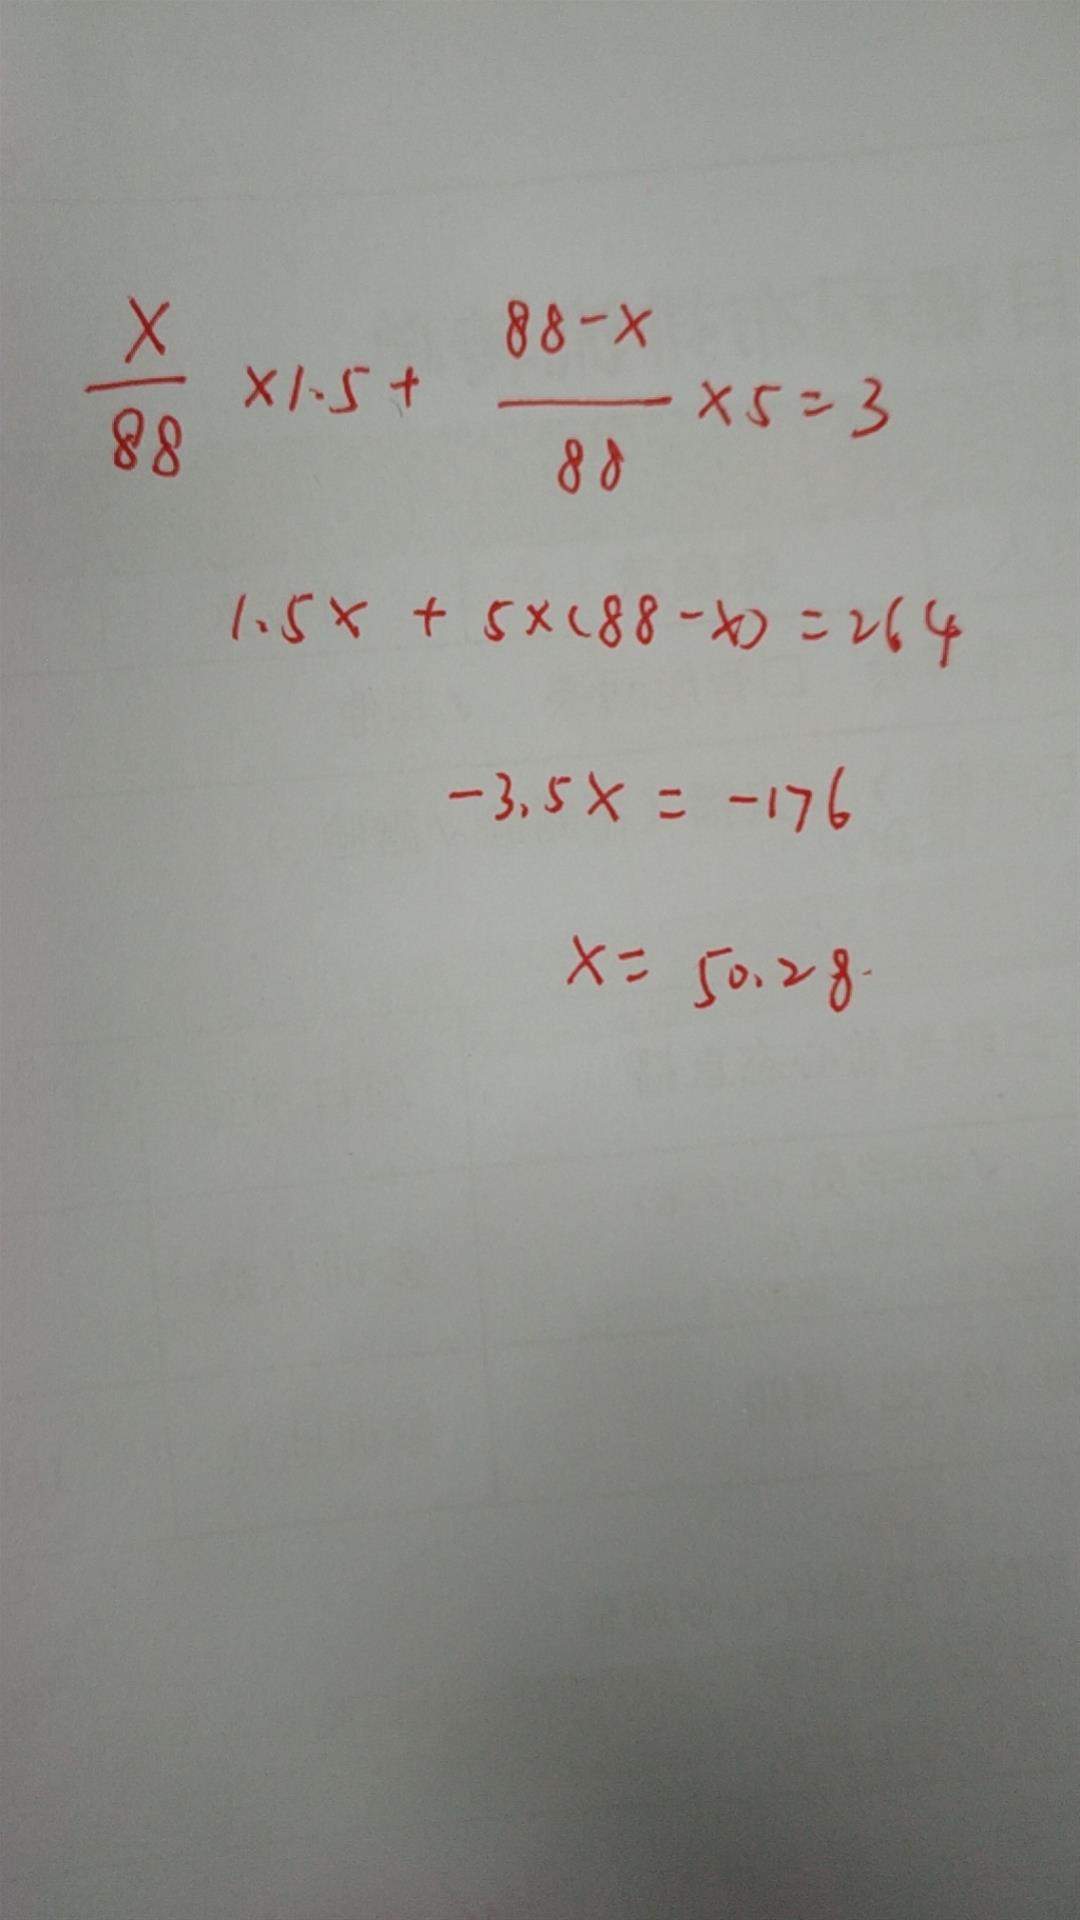 X/88 ×1.5+ 88-x/88 ×5=3
1.5x + 5×(88-x) =264
-3.5x = -176
x= 50.28.